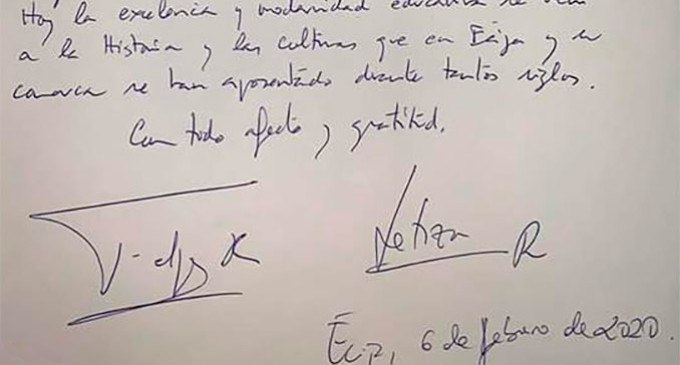 Hoy la excelencia y modernidad educativa se
a la Historia y las culturas que en Écija y su
comarca se han aposentado durante tantos siglos.
Con todo afecto y gratitud.
R Letizia R
Écija, 6 de febrero de 2020.